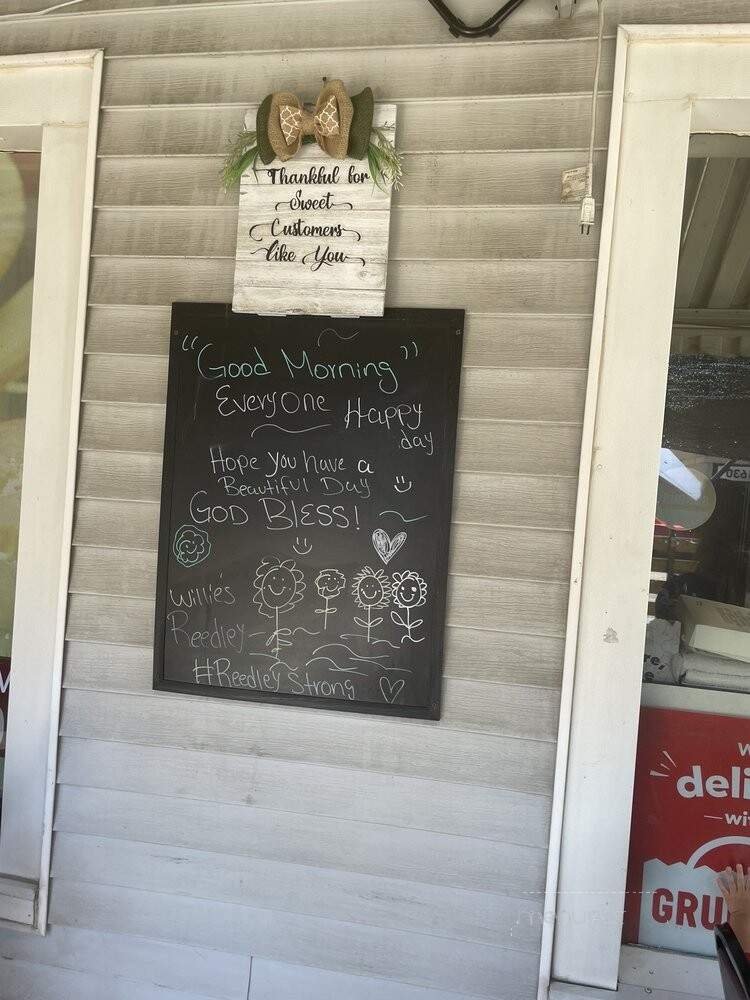 Thankful for
Sweet
Customers
like You
"Good Morning"
Everyone Happy
day
Hope you have a
Beautiful Day
GOD BLESS!
Willie's
Reedley
#Reedley Strong
deli
GRU